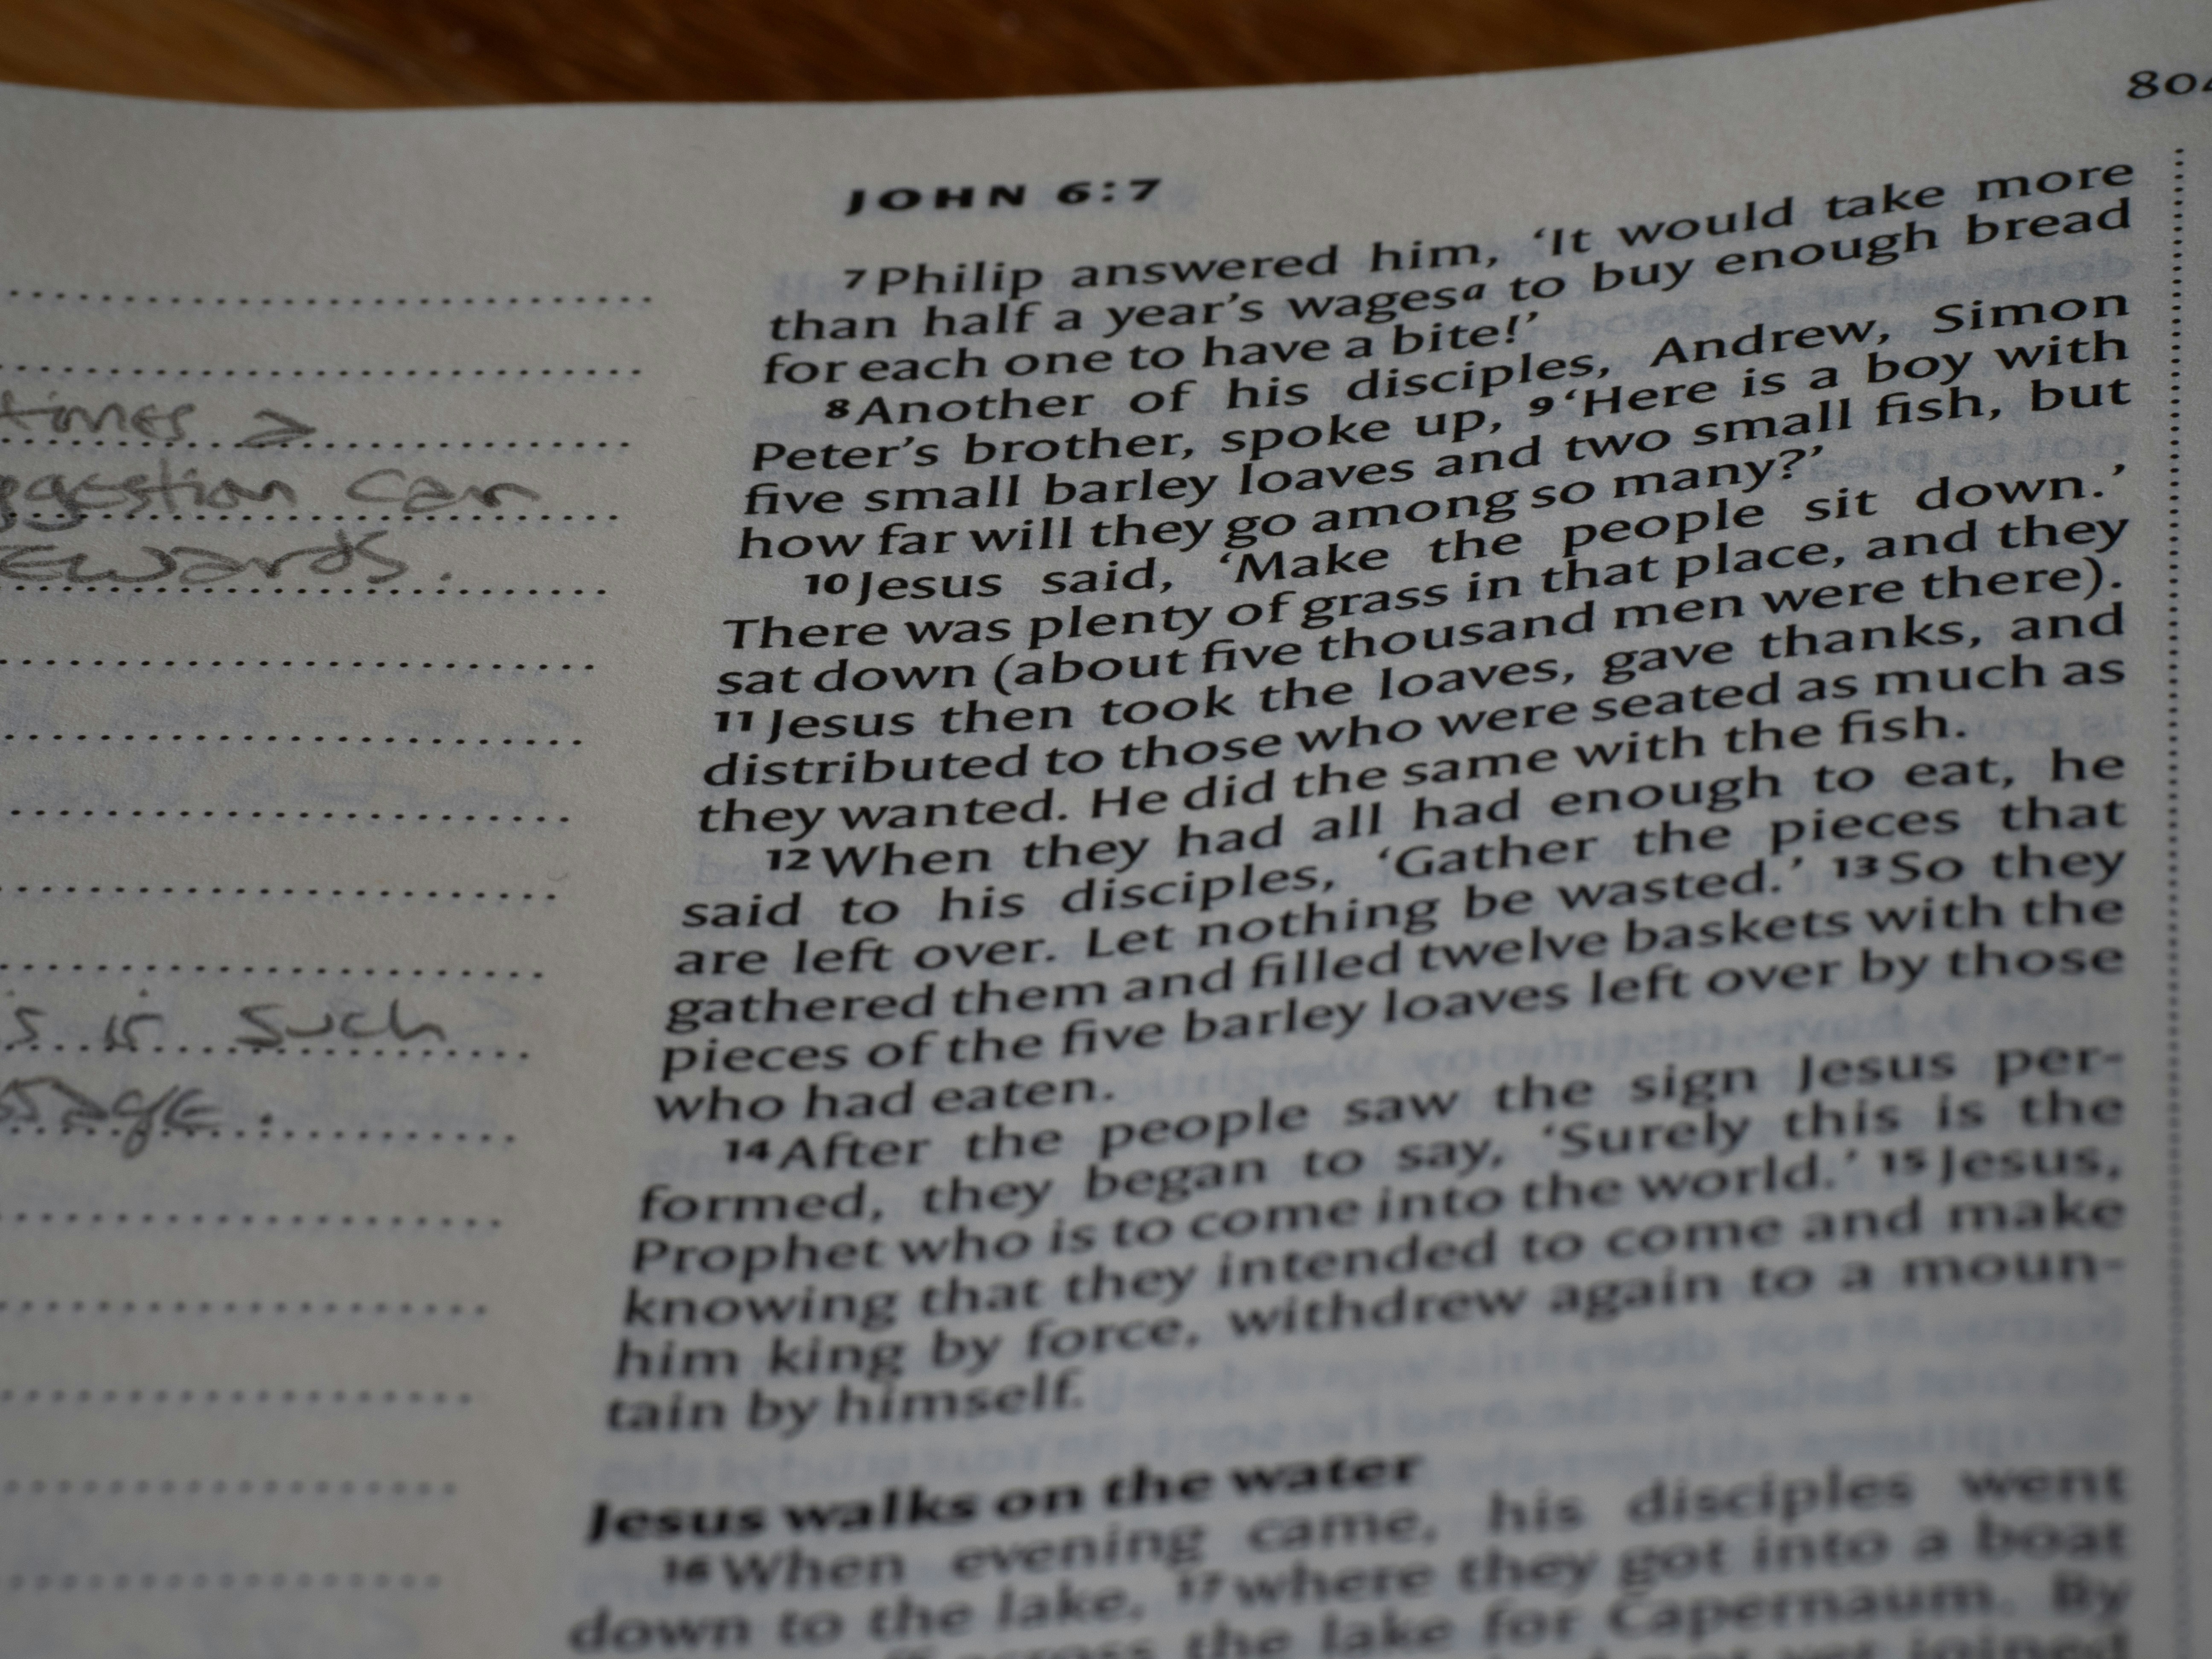 804
JOHN 6:7
7 Philip answered him, ‘It would take more
than half a year’s wagesᵃ to buy enough bread
for each one to have a bite!’
8 Another of his disciples, Andrew, Simon
Peter’s brother, spoke up, 9 ‘Here is a boy with
five small barley loaves and two small fish, but
how far will they go among so many?’
10 Jesus said, ‘Make the people sit down.’
There was plenty of grass in that place, and they
sat down (about five thousand men were there).
11 Jesus then took the loaves, gave thanks, and
distributed to those who were seated as much as
they wanted. He did the same with the fish.
12 When they had all had enough to eat, he
said to his disciples, ‘Gather the pieces that
are left over. Let nothing be wasted.’ 13 So they
gathered them and filled twelve baskets with the
pieces of the five barley loaves left over by those
who had eaten.
14 After the people saw the sign Jesus per-
formed, they began to say, ‘Surely this is the
Prophet who is to come into the world.’ 15 Jesus,
knowing that they intended to come and make
him king by force, withdrew again to a moun-
tain by himself.
Jesus walks on the water
16 When evening came, his disciples went
down to the lake, 17 where they got into a boat
across the lake for Capernaum. By
not yet joined
times a
ggestion can
ewards.
s is such
ssage.